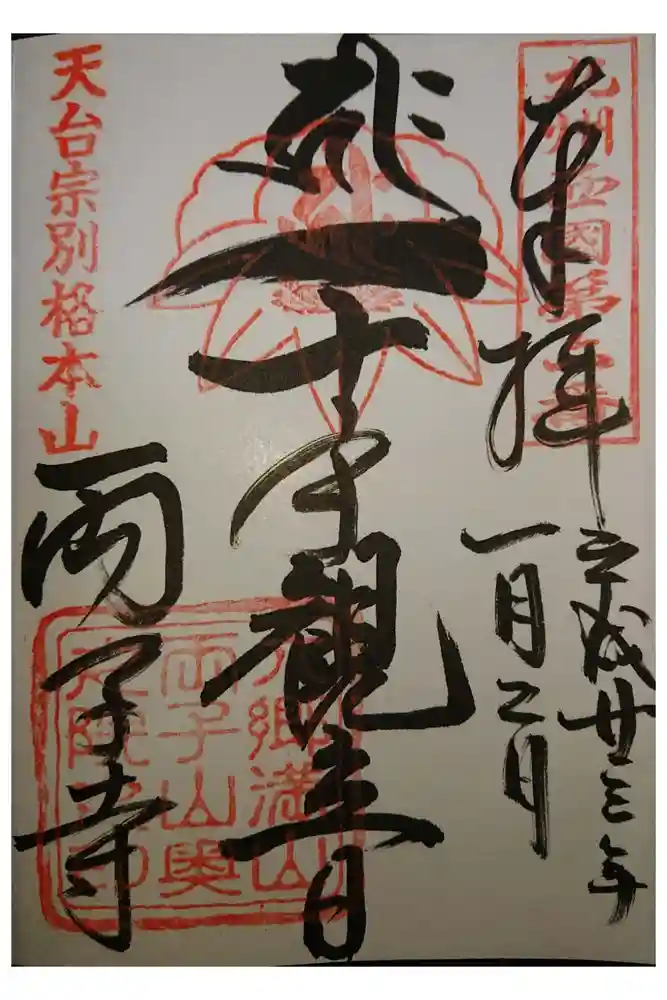 九州西国第六番
奉拝
平成廿三年
一月二日
千手観音
天台宗別格本山
両子寺
六郷満山
両子山奥
之院之印